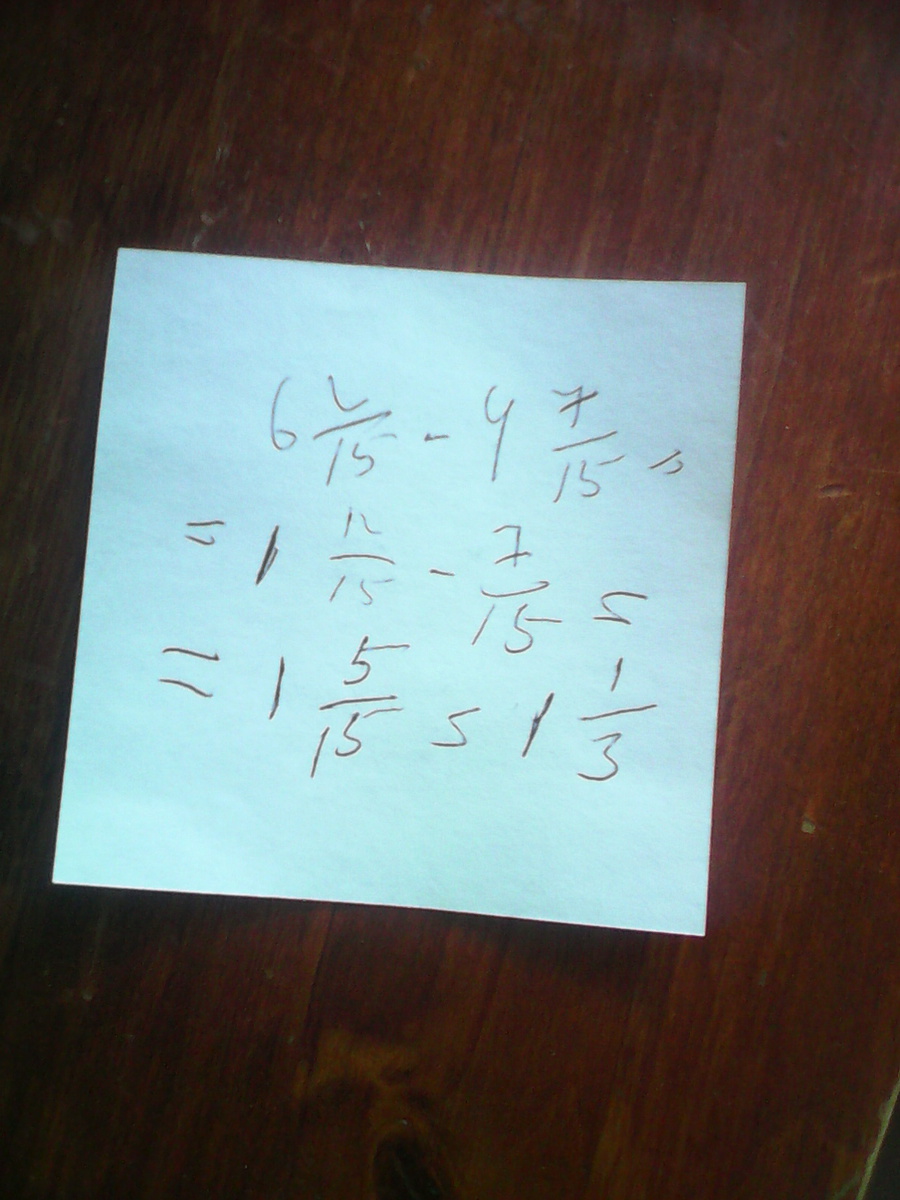 6 2/15 - 4 7/15 =
= 1 12/15 - 7/15 =
= 1 5/15 = 1 1/3